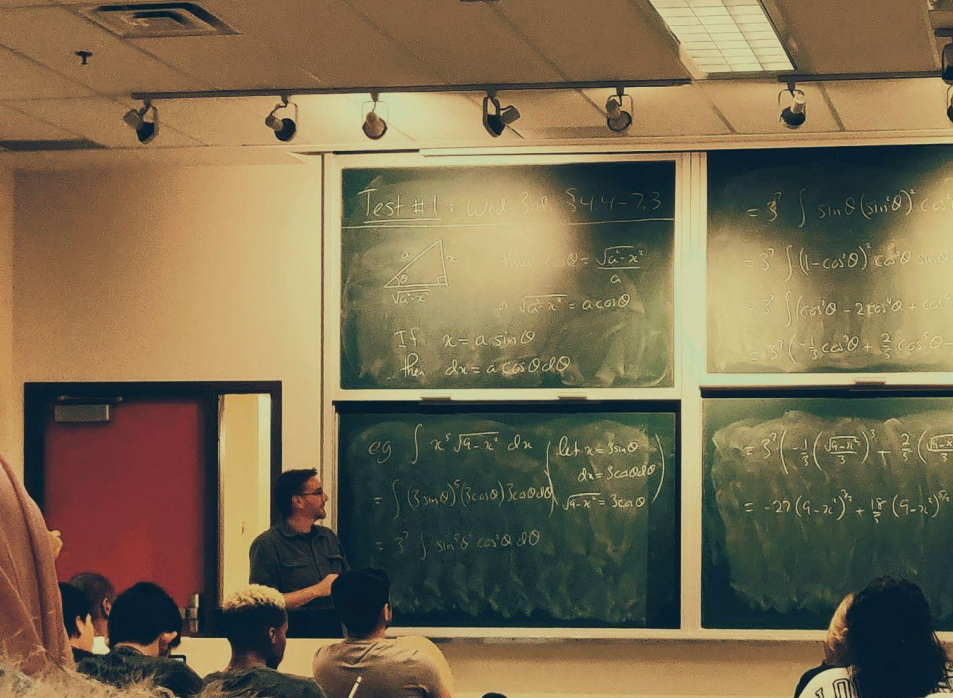 Test #1: Wed §4.4-7.3
a
θ
√(a²-x²)
θ = √(a²-x²)/a
√(a²-x²) = a cosθ
If x = a sinθ
then dx = a cosθ dθ
eg ∫ x⁵ √(9-x²) dx (let x = 3 sinθ
dx = 3 cosθ dθ
√(9-x²) = 3 cosθ)
= ∫ (3 sinθ)⁵ (3 cosθ) 3 cosθ dθ
= 3⁷ ∫ sin⁵θ cos²θ dθ
= 3⁷ ∫ sinθ (sin²θ)² cos²
= 3⁷ ∫ (1-cos²θ)² cos²θ sinθ
= 3⁷ ∫ (cos²θ - 2cos⁴θ + cos
= 3⁷ (-⅓ cos³θ + ⅖ cos⁵θ -
= 3⁷ (-⅓ (√(9-x²)/3)³ + ⅖ (
= -27 (9-x²)^(3/2) + 18/5 (9-x²)^(5/2)